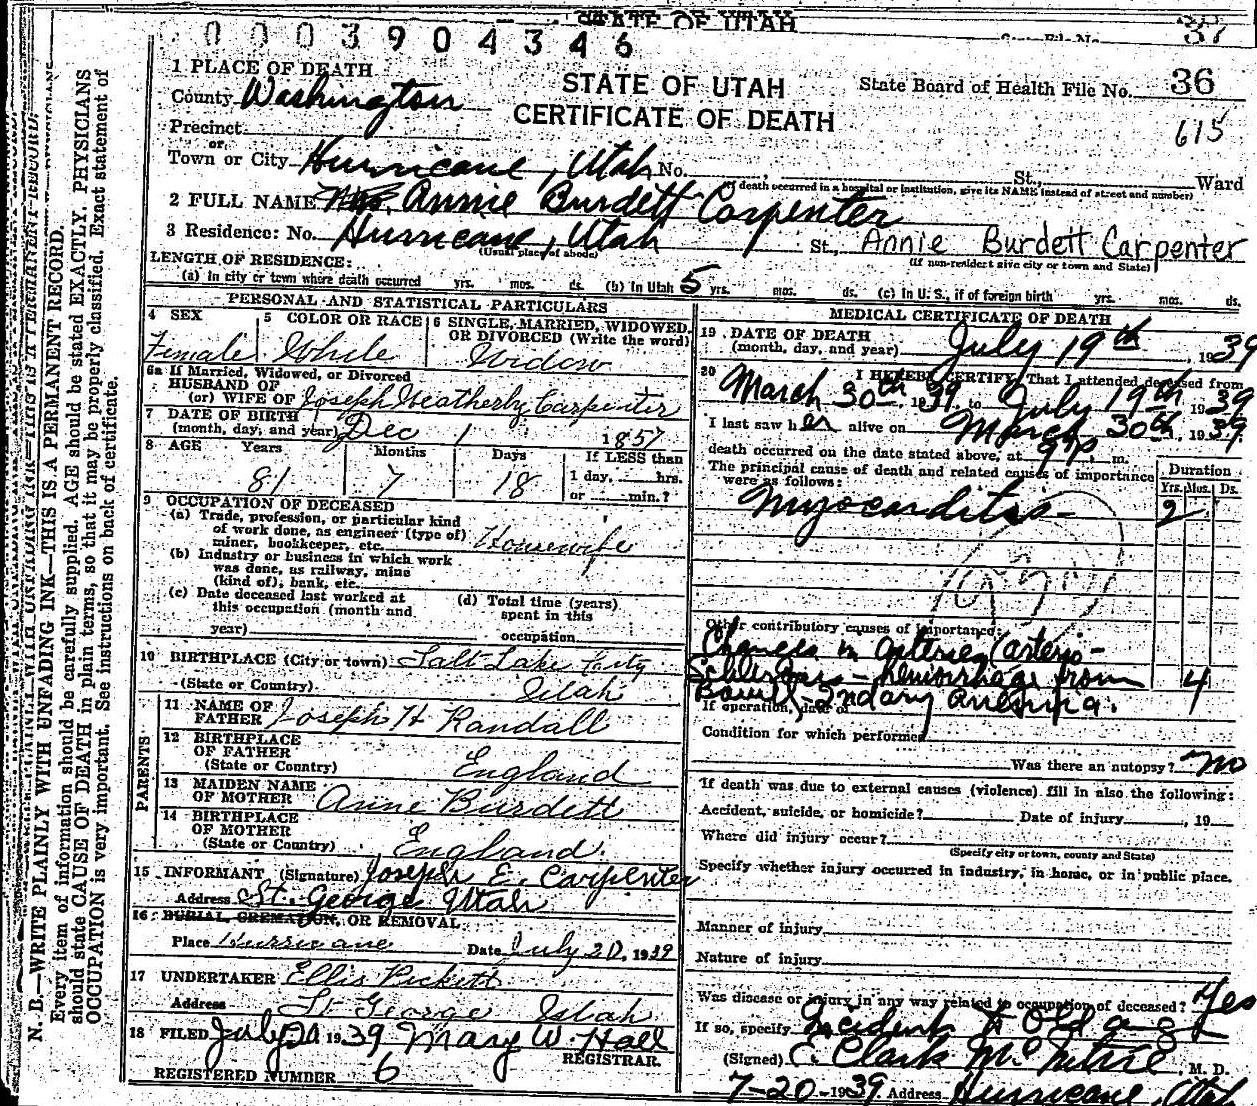 STATE OF UTAH
State File No. 37
0003904346
1 PLACE OF DEATH
STATE OF UTAH
CERTIFICATE OF DEATH
State Board of Health File No. 36
615
County Washington
Precinct
or
Town or City Hurricane, Utah No. St., Ward
(If death occurred in a hospital or institution, give its NAME instead of street and number)
2 FULL NAME Mrs. Annie Burdett Carpenter
3 Residence: No. Hurricane, Utah St., Annie Burdett Carpenter
(Usual place of abode) (If non-resident give city or town and State)
LENGTH OF RESIDENCE:
(a) In city or town where death occurred yrs. mos. ds. (b) In Utah 5 yrs. mos. ds. (c) In U. S., if of foreign birth yrs. mos. ds.
PERSONAL AND STATISTICAL PARTICULARS
4 SEX Female
5 COLOR OR RACE White
6 SINGLE, MARRIED, WIDOWED, OR DIVORCED (Write the word) Widow
6a If Married, Widowed, or Divorced
HUSBAND OF
(or) WIFE OF Joseph Weatherby Carpenter
7 DATE OF BIRTH
(month, day, and year) Dec 1 1857
8 AGE Years Months Days If LESS than
81 7 18 1 day, hrs.
or min.?
9 OCCUPATION OF DECEASED
(a) Trade, profession, or particular kind
of work done, as engineer (type of)
miner, bookkeeper, etc. Housewife
(b) Industry or business in which work
was done, as railway, mine
(kind of), bank, etc.
(c) Date deceased last worked at
this occupation (month and
year)
(d) Total time (years)
spent in this
occupation
10 BIRTHPLACE (City or town) Salt Lake City
(State or Country) Utah
PARENTS
11 NAME OF
FATHER Joseph H Randall
12 BIRTHPLACE
OF FATHER
(State or Country) England
13 MAIDEN NAME
OF MOTHER Anne Burdett
14 BIRTHPLACE
OF MOTHER
(State or Country) England.
15 INFORMANT (Signature) Joseph E. Carpenter
Address St. George Utah
16 BURIAL, CREMATION, OR REMOVAL
Place Hurricane Date July 20, 1939
17 UNDERTAKER Ellis Pickett
Address St George Utah
18 FILED July 20 1939 Mary W. Hall
REGISTRAR
REGISTERED NUMBER 6
MEDICAL CERTIFICATE OF DEATH
19 DATE OF DEATH
(month, day, and year) July 19th, 1939
20 I HEREBY CERTIFY, That I attended deceased from
March 30th, 1939, to July 19th 1939
I last saw her alive on March 30th, 1939
death occurred on the date stated above, at 9 P. m.
The principal cause of death and related causes of importance
were as follows:
Duration
Yrs. Mos. Ds.
Myocarditis 2
Other contributory causes of importance:
Changes in arteries (arterio-
- hemorrhage from 4
Bowel - 2ndary anemia.
If operation, date of
Condition for which performed
Was there an autopsy? No
If death was due to external causes (violence) fill in also the following:
Accident, suicide, or homicide? Date of injury , 19
Where did injury occur?
(Specify city or town, county and State)
Specify whether injury occurred in industry, in home, or in public place.
Manner of injury
Nature of injury
Was disease or injury in any way related to occupation of deceased? Yes
If so, specify Incident to Old age
(Signed) E. Clark McIntire, M. D.
7-20-1939. Address Hurricane, Utah
N. B.—WRITE PLAINLY WITH UNFADING INK—THIS IS A PERMANENT RECORD.
Every item of information should be carefully supplied. AGE should be stated EXACTLY. PHYSICIANS
should state CAUSE OF DEATH in plain terms, so that it may be properly classified. Exact statement of
OCCUPATION is very important. See instructions on back of certificate.